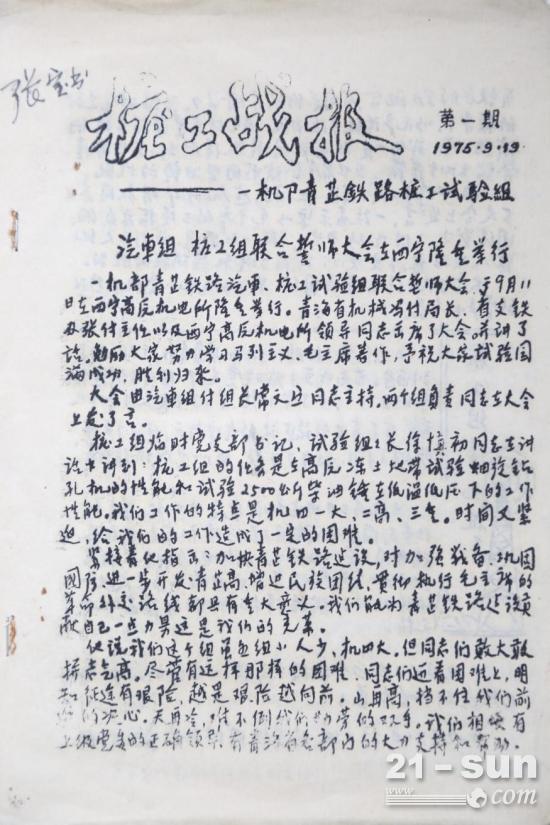 张宝书
桩工战报
第一期
1975.9.19
——一机部青芷铁路桩工试验组
汽車组 桩工组联合誓师大会在西宁隆重举行
一机部青芷铁路汽車、桩工试验组联合誓师大会，于9月11
日在西宁高原机电所隆重举行。青海省机械局付局长、省支铁
办张付主任以及西宁高原机电所领导同志出席了大会。并讲了
话。勉励大家努力学习马列主义、毛主席著作，予祝大家试验园
满成功，胜利归来。
大会由汽車组付组长常文 同志主持，两个组负责同志在大会
上发了言。
桩工组临时党支部书记、试验组组长徐慎初同志在讲
话中讲到：桩工组的任务是在高原冻土地带试验螺旋钻
孔机的性能和试验2500公斤柴油锤在低温低压下的工作
性能。我们工作的特点是机四一大、二高、三 。时间又紧
迫，给我们的工作造成了一定的困难。
紧接着他指出：加快青芷铁路建设，对加强战备、巩固
国防，进一步开发青芷高，增进民族团结，贯彻执行毛主席的
革命外交路线都具有重大意义。我们能为青芷铁路建设贡
献自己一些力量这是我们的光荣。
他说我们这个组虽包组小人少，机四大，但同志们敢大敢
拼志气高。尽管有这样那样的困难，同志们迎着困难上，明
知征途有艰险，越是艰险越向前。山再高，挡不住我们前
进的决心。天再冷，难不倒我们勤劳的双手。我们相信有
上级党委的正确领导，有青海省各部门的大力支持和帮助，
21-sun
www. .com